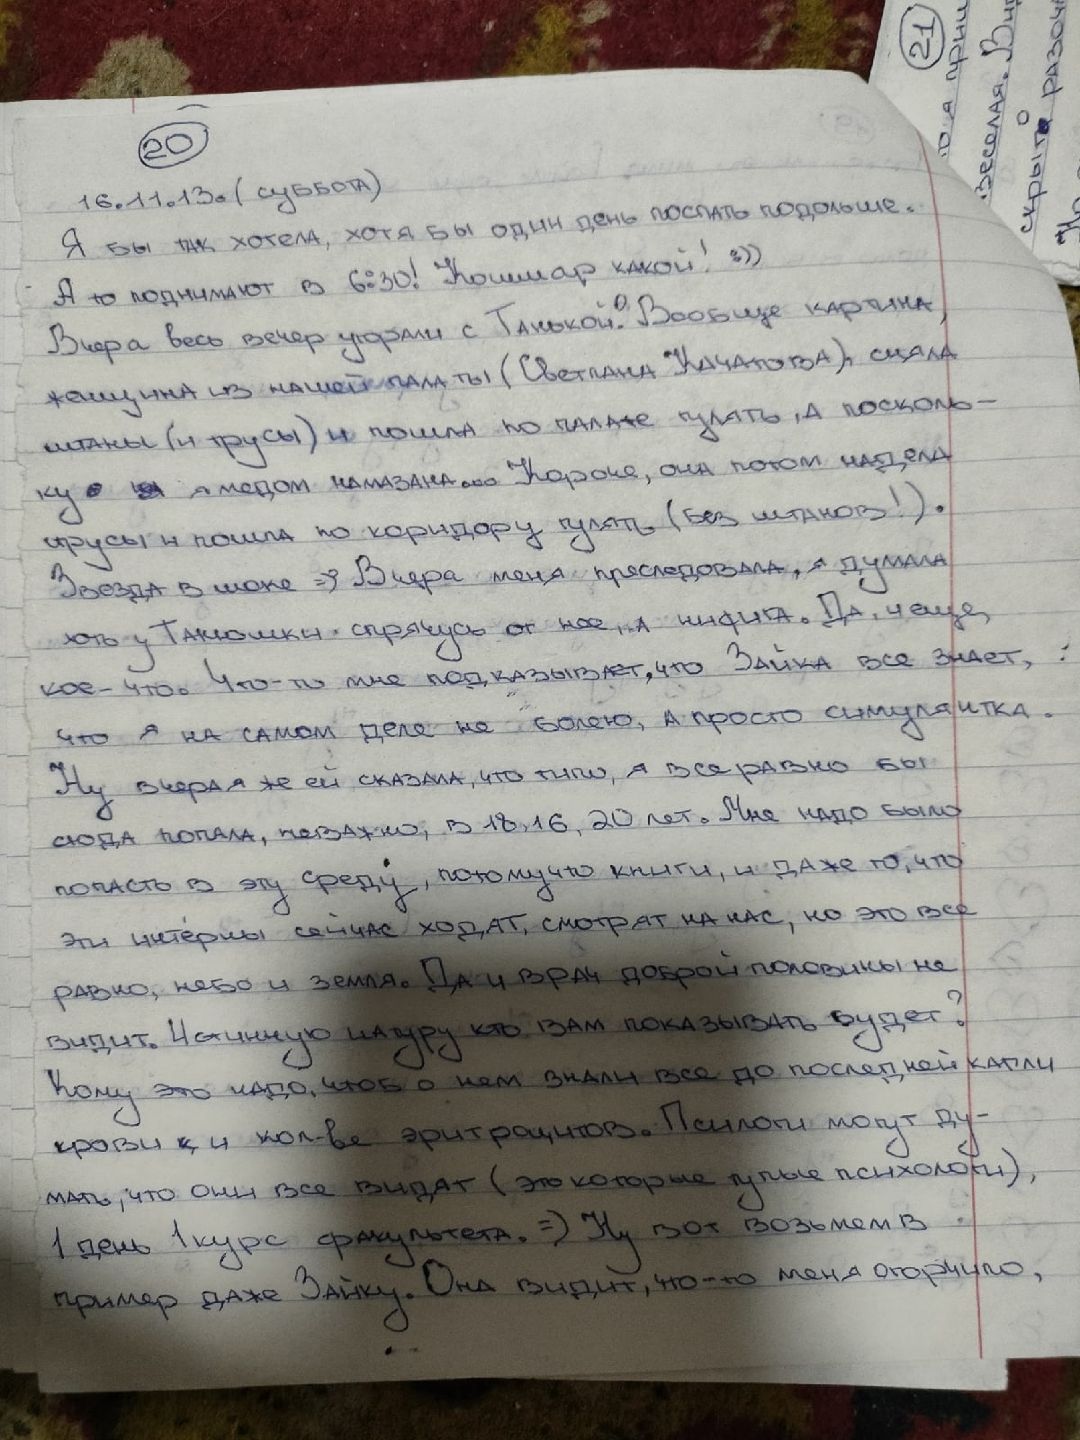 20
16.11.13. (суббота)
Я бы так хотела, хотя бы один день поспать подольше.
А то поднимают в 6:30! Кошмар какой! :))
Вчера весь вечер угорали с Танькой. Вообще картина,
женщина из нашей палаты (Светлана), сняла
штаны (и трусы) и пошла по палате гулять, а посколь-
ку я медом намазана... Короче, она потом надела
трусы и пошла по коридору гулять (без штанов!).
Звезда в шоке =) Вчера меня преследовала, я думала
хоть у Танюшки спрячусь от нее, а нифига. Да, и еще,
кое-что. Что-то мне подказывает, что Зайка все знает,
что я на самом деле не болею, а просто симулянтка.
Ну вчера я же ей сказала, что типо, я все равно бы
сюда попала, неважно, в 18, 16, 20 лет. Мне надо было
попасть в эту среду, потомучто книги, и даже то, что
эти интерны сейчас ходят, смотрят на нас, но это все
равно, небо и земля. Да и врач доброй половины не
видит. Истинную натуру кто вам показывать будет?
Кому это надо, чтоб о нем знали все до последней капли
крови и кол-ве эритроцитов. Психологи могут ду-
мать, что они все видят (это которые тупые психологи),
1 день 1 курс факультета. =) Ну вот возьмем в
пример даже Зайку. Она видит, что-то меня огорчило,
21
я приш
веселая. Ви
скрытой разоч